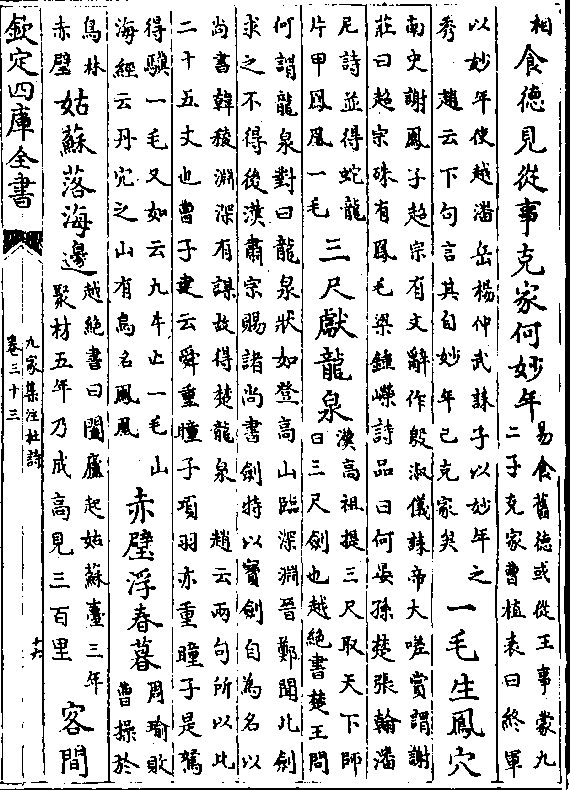 相食德見從事克家何妙年易食舊德或從王事蒙九
二子克家曹植表曰終軍
以妙年使越潘岳楊仲武誄子以妙年之
秀　趙云下句言其自妙年已克家矣一毛生鳳穴
南史謝鳳子超宗有文辭作殷淑儀誄帝大嗟賞謂謝
莊曰超宗殊有鳳毛梁鍾嶸詩品曰何晏孫楚張翰潘
尼詩並得蛇龍
片甲鳳凰一毛三尺獻龍泉漢高祖提三尺取天下師
曰三尺劍也越絶書楚王問
何謂龍泉對曰龍泉狀如登高山臨深淵晉鄭聞此劍
求之不得後漢肅宗賜諸尚書劍特以寳劍自為名以
尚書韓稜淵深有謀故得楚龍泉　趙云兩句所以比
二十五丈也曹子建云舜重瞳子項羽亦重瞳子是駑
得驥一毛又如云九牛亡一毛山
海經云丹穴之山有鳥名鳳凰赤壁浮春暮周瑜敗
曹操於
烏林
赤壁姑蘇落海邊越絶書曰闔廬起姑蘇臺三年
聚材五年乃成高見三百里客間
欽定四庫全書
九家集注杜詩
卷三十三
十六